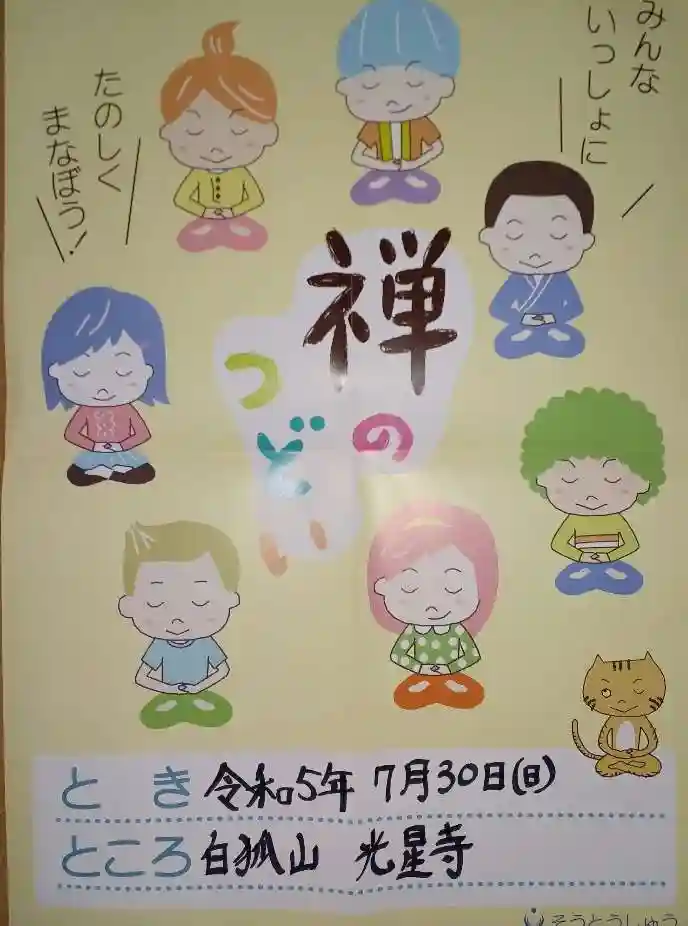 みんな
いっしょに
たのしく
まなぼう!
禅
の
つどい
とき 令和5年 7月30日(日)
ところ 白狐山 光星寺
そうとうしゅう